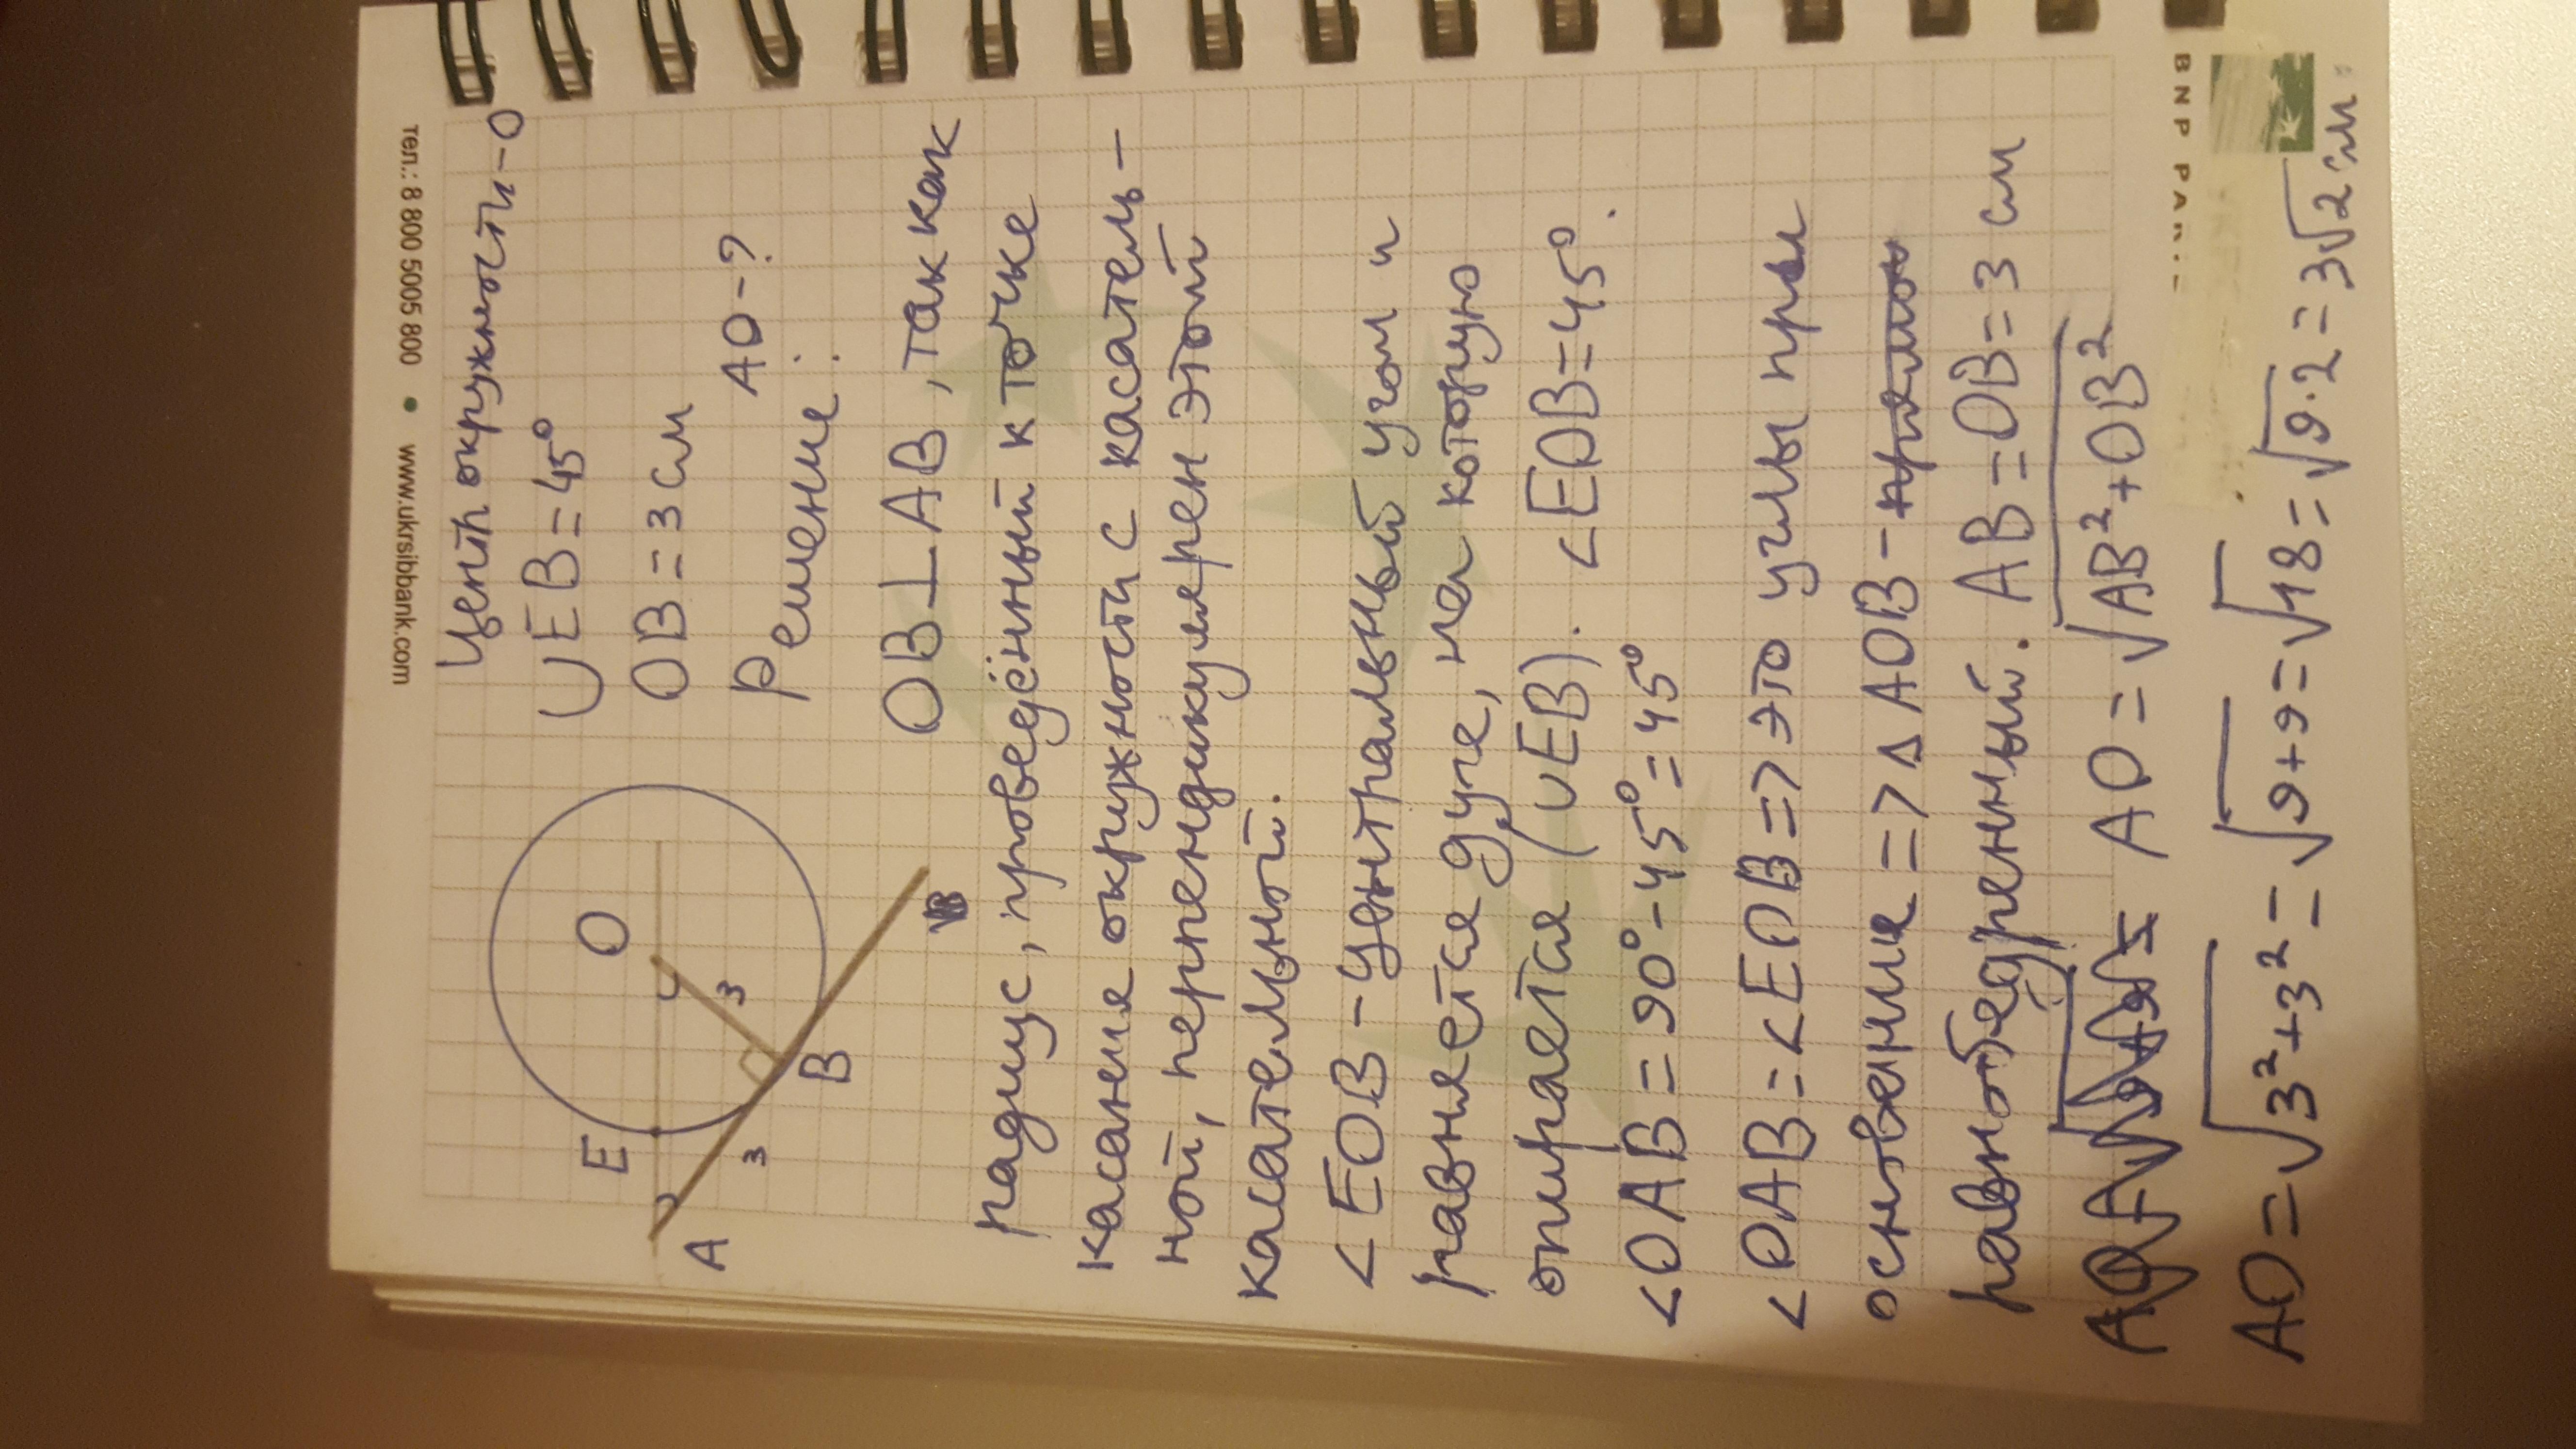 тел.: 8 800 5005 800 • www.ukrsibbank.com
Центр окружности - О
∪EB = 45°
OB = 3 см
AO - ?
Решение:
E
O
A
3
3
B
OB ⊥ AB, так как
радиус, проведённый к точке
касания окружности с касатель-
ной, перпендикулярен этой
касательной.
<EOB - центральный угол и
равняется дуге, на которую
опирается (∪EB). <EOB = 45°.
<OAB = 90° - 45° = 45°
<OAB = <EOB => это углы при
основании => △AOB -
равнобедренный. AB = OB = 3 см
AO = √AB² + OB²
AO = √3² + 3² = √9 + 9 = √18 = √9 · 2 = 3√2 см.
BNP PA